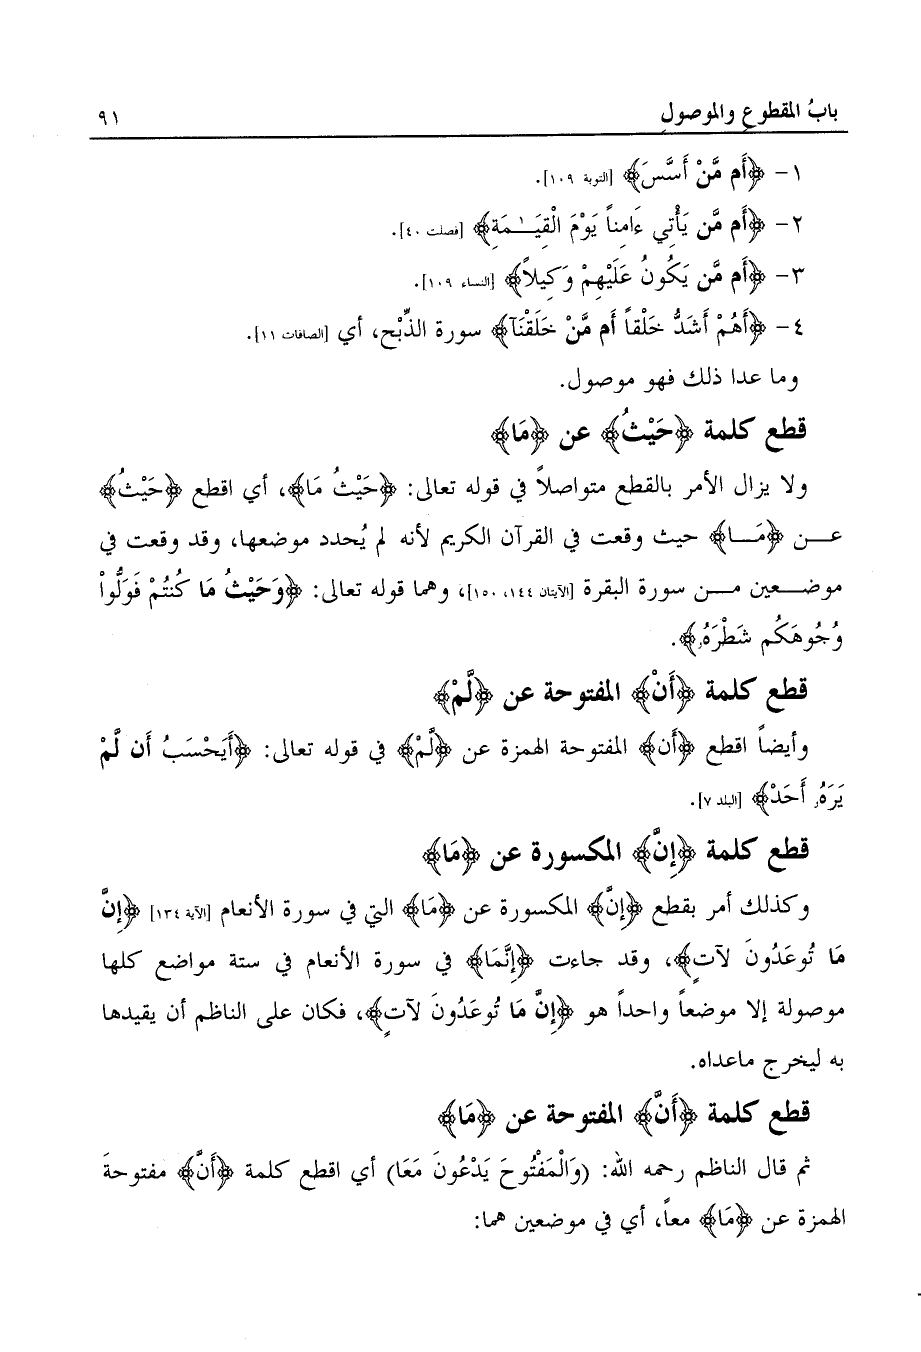 بابُ المقطوعِ والموصولِ ٩١
١- ﴿أَم مَّنْ أَسَّسَ﴾ [التوبة ١٠٩].
٢- ﴿أَم مَّن يَأْتِي ءَامِناً يَوْمَ الْقِيَـٰمَةِ﴾ [فصلت ٤٠].
٣- ﴿أَم مَّن يَكُونُ عَلَيْهِمْ وَكِيلاً﴾ [النساء ١٠٩].
٤- ﴿أَهُمْ أَشَدُّ خَلْقاً أَم مَّنْ خَلَقْنَآ﴾ سورة الذِّبْح، أي [الصافات ١١].
وما عدا ذلك فهو موصول.
قطع كلمة ﴿حَيْثُ﴾ عن ﴿مَا﴾
ولا يزال الأمر بالقطع متواصلاً في قوله تعالى: ﴿حَيْثُ مَا﴾، أي اقطع ﴿حَيْثُ﴾
عـن ﴿مَـا﴾ حيث وقعت في القرآن الكريم لأنه لم يُحدد موضعها، وقد وقعت في
موضـعين مـن سورة البقرة [الآيتان ١٤٤، ١٥٠]، وهما قوله تعالى: ﴿وَحَيْثُ مَا كُنتُمْ فَوَلُّواْ
وُجُوهَكُم شَطْرَهُۥ﴾.
قطع كلمة ﴿أَنْ﴾ المفتوحة عن ﴿لَّمْ﴾
وأيضاً اقطع ﴿أَن﴾ المفتوحة الهمزة عن ﴿لَّمْ﴾ في قوله تعالى: ﴿أَيَحْسَبُ أَن لَّمْ
يَرَهُۥ أَحَدْ﴾ [البلد ٧].
قطع كلمة ﴿إِنَّ﴾ المكسورة عن ﴿مَا﴾
وكذلك أمر بقطع ﴿إِنَّ﴾ المكسورة عن ﴿مَا﴾ التي في سورة الأنعام [الآية ١٣٤] ﴿إِنَّ
مَا تُوعَدُونَ لَآتٍ﴾، وقد جاءت ﴿إِنَّمَا﴾ في سورة الأنعام في ستة مواضع كلها
موصولة إلا موضعاً واحداً هو ﴿إِنَّ مَا تُوعَدُونَ لَآتٍ﴾، فكان على الناظم أن يقيدها
به ليخرج ماعداه.
قطع كلمة ﴿أَنَّ﴾ المفتوحة عن ﴿مَا﴾
ثم قال الناظم رحمه الله: (وَالْمَفْتُوحَ يَدْعُونَ مَعَا) أي اقطع كلمة ﴿أَنَّ﴾ مفتوحةَ
الهمزة عن ﴿مَا﴾ معاً، أي في موضعين هما: